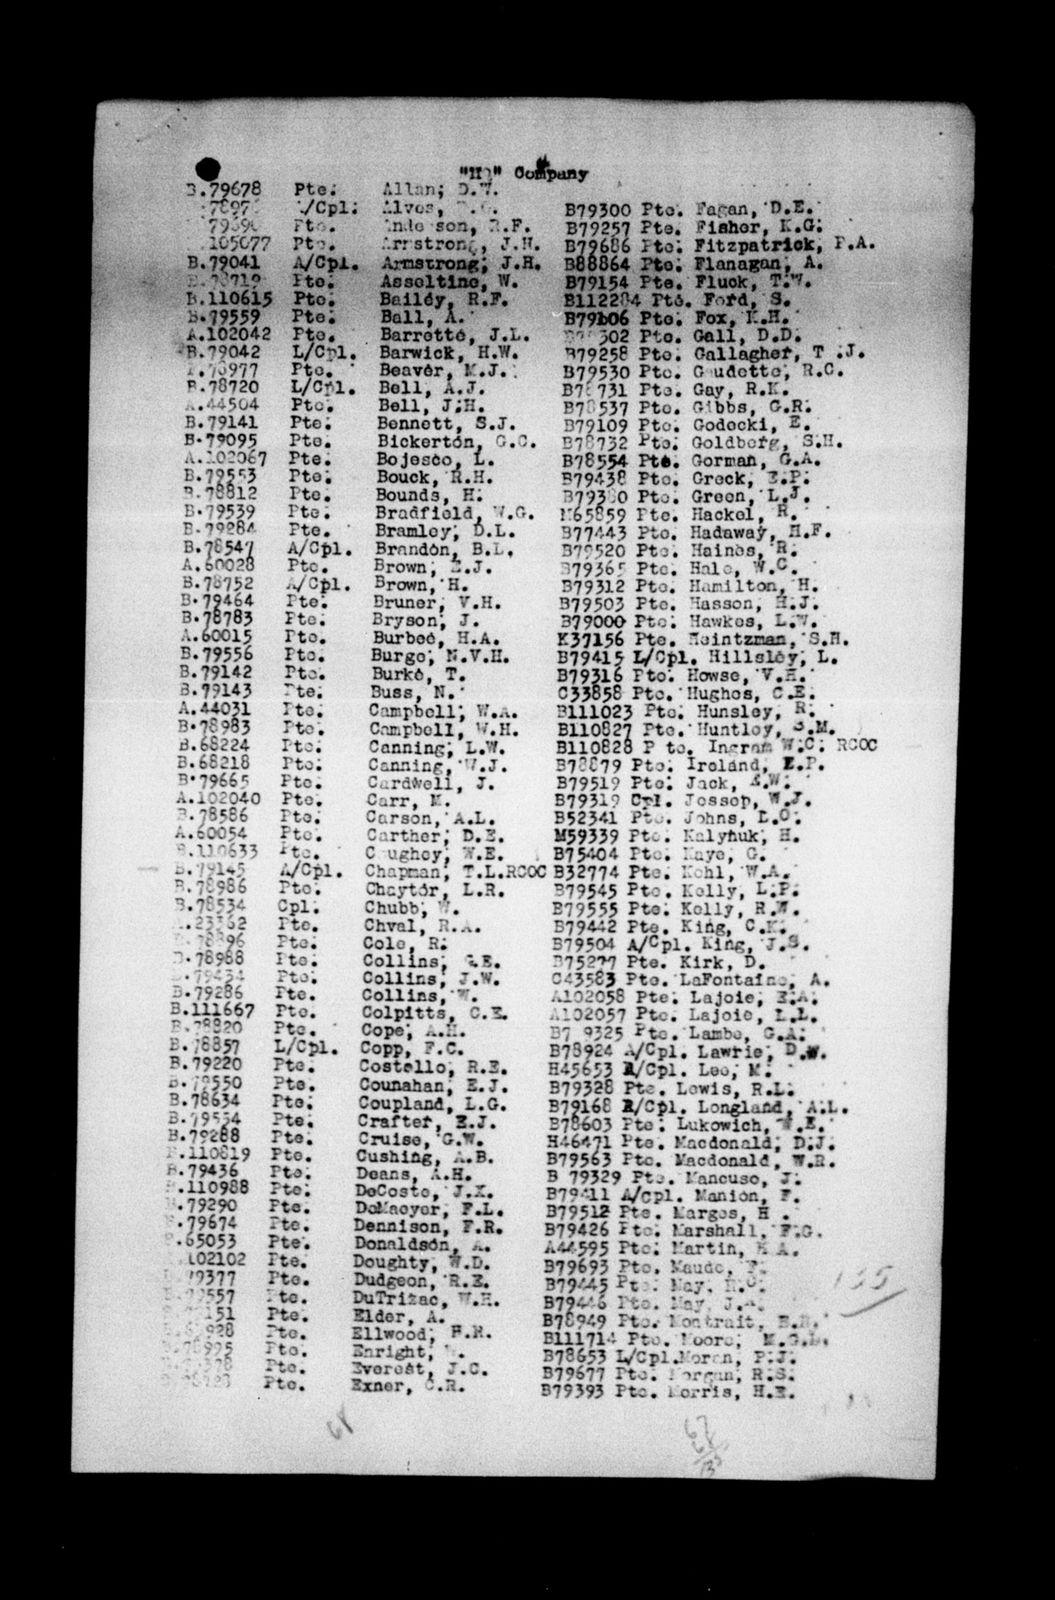 Company
B.79678 Pte. Allan, D.W.
L/Cpl. Alves,
Pte. Anderson, R.F.
105077 Pte. Armstrong, J.H.
B.79041 A/Cpl. Armstrong, J.H.
Pte. Asseltine, W.
B.110615 Pte. Bailey, R.F.
B.79559 Pte. Ball, A.
A.102042 Pte. Barrette, J.L.
B.79042 L/Cpl. Barwick, H.W.
Pte. Beaver, M.J.
B.78720 L/Cpl. Bell, A.J.
A.44504 Pte. Bell, J.H.
B.79141 Pte. Bennett, S.J.
B.79095 Pte. Bickerton, G.C.
A.102067 Pte. Bojesco, L.
B.79553 Pte. Bouck, R.H.
B.78812 Pte. Bounds, H.
B.79539 Pte. Bradfield, W.G.
B.79284 Pte. Bramley, D.L.
B.78547 A/Cpl. Brandon, B.L.
A.60028 Pte. Brown, E.J.
B.78752 A/Cpl. Brown, H.
B.79464 Pte. Bruner, V.H.
B.78783 Pte. Bryson, J.
A.60015 Pte. Burbee, H.A.
B.79556 Pte. Burge, N.V.H.
B.79142 Pte. Burke, T.
B.79143 Pte. Buss, N.
A.44031 Pte. Campbell, W.A.
B.78983 Pte. Campbell, W.H.
B.68224 Pte. Canning, L.W.
B.68218 Pte. Canning, W.J.
B.79665 Pte. Cardwell, J.
A.102040 Pte. Carr, M.
B.78586 Pte. Carson, A.L.
A.60054 Pte. Carther, D.E.
B.110633 Pte. Caughey, W.E.
B.79145 A/Cpl. Chapman, T.L.RCOC
B.78986 Pte. Chaytor, L.R.
B.78534 Cpl. Chubb, W.
Pte. Chval, R.A.
Pte. Cole, R.
B.78988 Pte. Collins, G.E.
B.79434 Pte. Collins, J.W.
B.79286 Pte. Collins, W.
B.111667 Pte. Colpitts, C.E.
B.78820 Pte. Cope, A.H.
B.78857 L/Cpl. Copp, F.C.
B.79220 Pte. Costello, R.E.
B.79550 Pte. Counahan, E.J.
B.78634 Pte. Coupland, L.G.
B.79554 Pte. Crafter, E.J.
B.79288 Pte. Cruise, G.W.
B.110819 Pte. Cushing, A.B.
B.79436 Pte. Deans, A.H.
B.110988 Pte. DeCoste, J.X.
B.79290 Pte. DeMaeyer, F.L.
B.79674 Pte. Dennison, F.R.
B.65053 Pte. Donaldson, A.
.102102 Pte. Doughty, W.D.
79377 Pte. Dudgeon, R.E.
Pte. DuTrizac, W.H.
Pte. Elder, A.
Pte. Ellwood, F.R.
Pte. Enright,
Pte. Everest, J.C.
Pte. Exner, C.R.
68
B79300 Pte. Fagan, D.E.
B79257 Pte. Fisher, K.G.
B79686 Pte. Fitzpatrick, F.A.
B88864 Pte. Flanagan, A.
B79154 Pte. Fluck, T.W.
B112284 Pte. Ford, S.
B79106 Pte. Fox, K.H.
Pte. Gall, D.D.
B79258 Pte. Gallagher, T .J.
B79530 Pte. Gaudette, R.C.
B78731 Pte. Gay, R.K.
B78537 Pte. Gibbs, G.R.
B79109 Pte. Godecki, E.
B78732 Pte. Goldberg, S.H.
B78554 Pte. Gorman, G.A.
B79438 Pte. Greck, E.P.
B79380 Pte. Green, L.J.
M65859 Pte. Hackel, R.
B77443 Pte. Hadaway, H.F.
B79520 Pte. Haines, R.
B79365 Pte. Hale, W.C.
B79312 Pte. Hamilton, H.
B79503 Pte. Hasson, H.J.
B79000 Pte. Hawkes, L.W.
K37156 Pte. Heintzman, S.H.
B79415 L/Cpl. Hillsley, L.
B79316 Pte. Howse, V.H.
C33858 Pte. Hughes, C.E.
B111023 Pte. Hunsley, R.
B110827 Pte. Huntley, S.M.
B110828 P te. Ingram W.C. RCOC
B78879 Pte. Ireland, E.P.
B79519 Pte. Jack, A.W.
B79319 Cpl. Jessop, W.J.
B52341 Pte. Johns, L.O.
M59339 Pte. Kalynuk, H.
B75404 Pte. Kaye, G.
B32774 Pte. Kehl, W.A.
B79545 Pte. Kelly, L.P.
B79555 Pte. Kelly, R.W.
B79442 Pte. King, C.K.
B79504 A/Cpl. King, J.S.
B75277 Pte. Kirk, D.
C43583 Pte. LaFontaine, A.
A102058 Pte. Lajoie, E.A.
A102057 Pte. Lajoie, L.L.
B7 9325 Pte. Lambe, G.A.
B78924 A/Cpl. Lawrie, D.W.
H45653 A/Cpl. Lee, M.
B79328 Pte. Lewis, R.L.
B79168 A/Cpl. Longland, A.L.
B78603 Pte. Lukowich, W.E.
H46471 Pte. Macdonald, D.J.
B79563 Pte. Macdonald, W.R.
B 79329 Pte. Mancuso, J.
B79411 A/Cpl. Manion, F.
B79512 Pte. Marges, H .
B79426 Pte. Marshall, F.G.
A44595 Pte. Martin, K.A.
B79693 Pte. Maude, F.
B79445 Pte. May,
B79446 Pte. May, J.A.
B78949 Pte. Montrait,
B111714 Pte. Moore, M.G.L.
B78653 L/Cpl.Moran, P.J.
B79677 Pte. Morgan, R.S.
B79393 Pte. Morris, H.E.
135
67
68
135